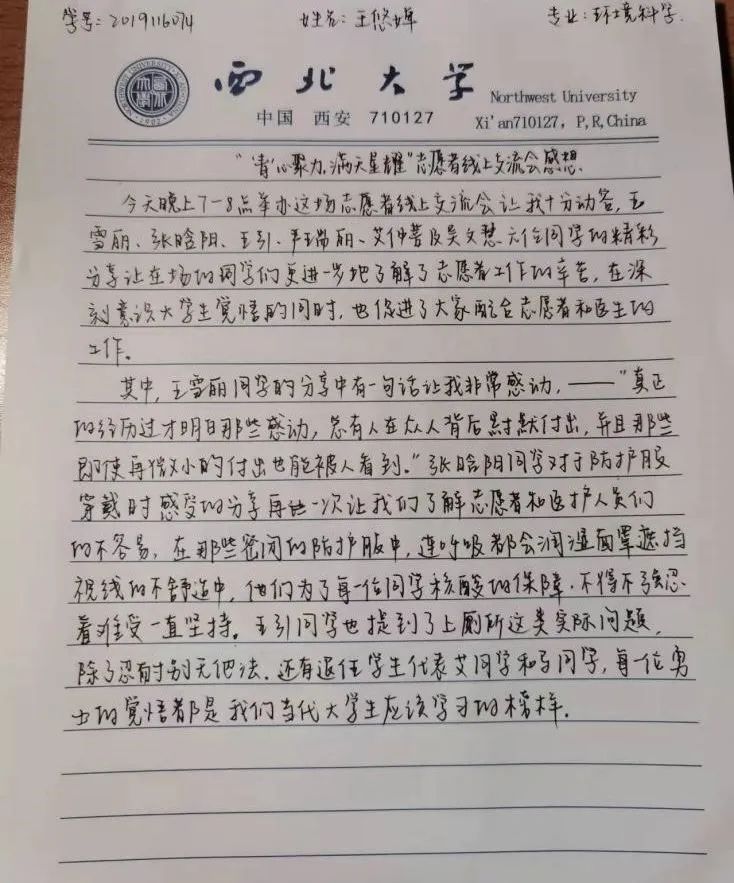 学号：2019116074 姓名：王悠婵 专业：环境科学
西北大学 Northwest University
中国 西安 710127 Xi'an710127, P,R,China
"青心聚力,满天星耀"志愿者线上交流会感想
今天晚上7-8点举办这场志愿者线上交流会让我十分动容，王
雪丽、张晗阳、王引、芦瑞丽、艾仲普及吴文慧六位同学的精彩
分享让在场的同学们更进一步地了解了志愿者工作的辛苦，在深
刻意识大学生觉悟的同时，也促进了大家配合志愿者和医生的
工作。
其中，王雪丽同学的分享中有一句话让我非常感动，——"真正
的经历过才明白那些感动，总有人在众人背后默默付出，并且那些
即使再微小的付出也能被人看到。"张晗阳同学对于防护服
穿戴时感受的分享再一次让我们了解志愿者和医护人员们
的不容易，在那些密闭的防护服中，连呼吸都会润湿面罩遮挡
视线的不舒适中，他们为了每一位同学核酸的保障，不得不强忍
着难受一直坚持。王引同学也提到了上厕所这类实际问题，
除了忍耐别无他法。还有退伍学生代表艾同学和马同学，每一位勇
士的觉悟都是我们当代大学生应该学习的榜样。